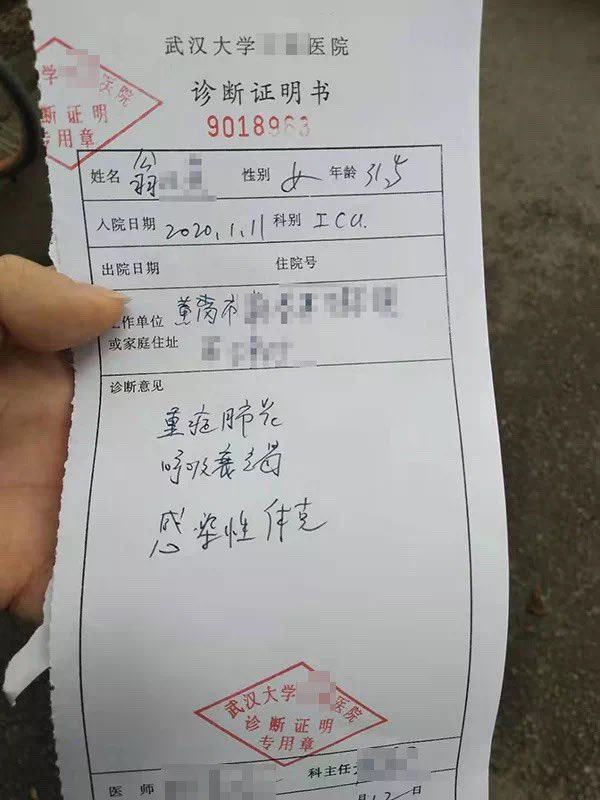 武汉大学 医院
诊断证明书
学 医院
诊断证明
专用章
9018963
姓名 翁 性别 女 年龄 31岁
入院日期 2020.1.11 科别 ICU.
出院日期 住院号
工作单位
或家庭住址
诊断意见
重症肺炎
呼吸衰竭
感染性休克
武汉大学 医院
诊断证明
专用章
医 师 科主任